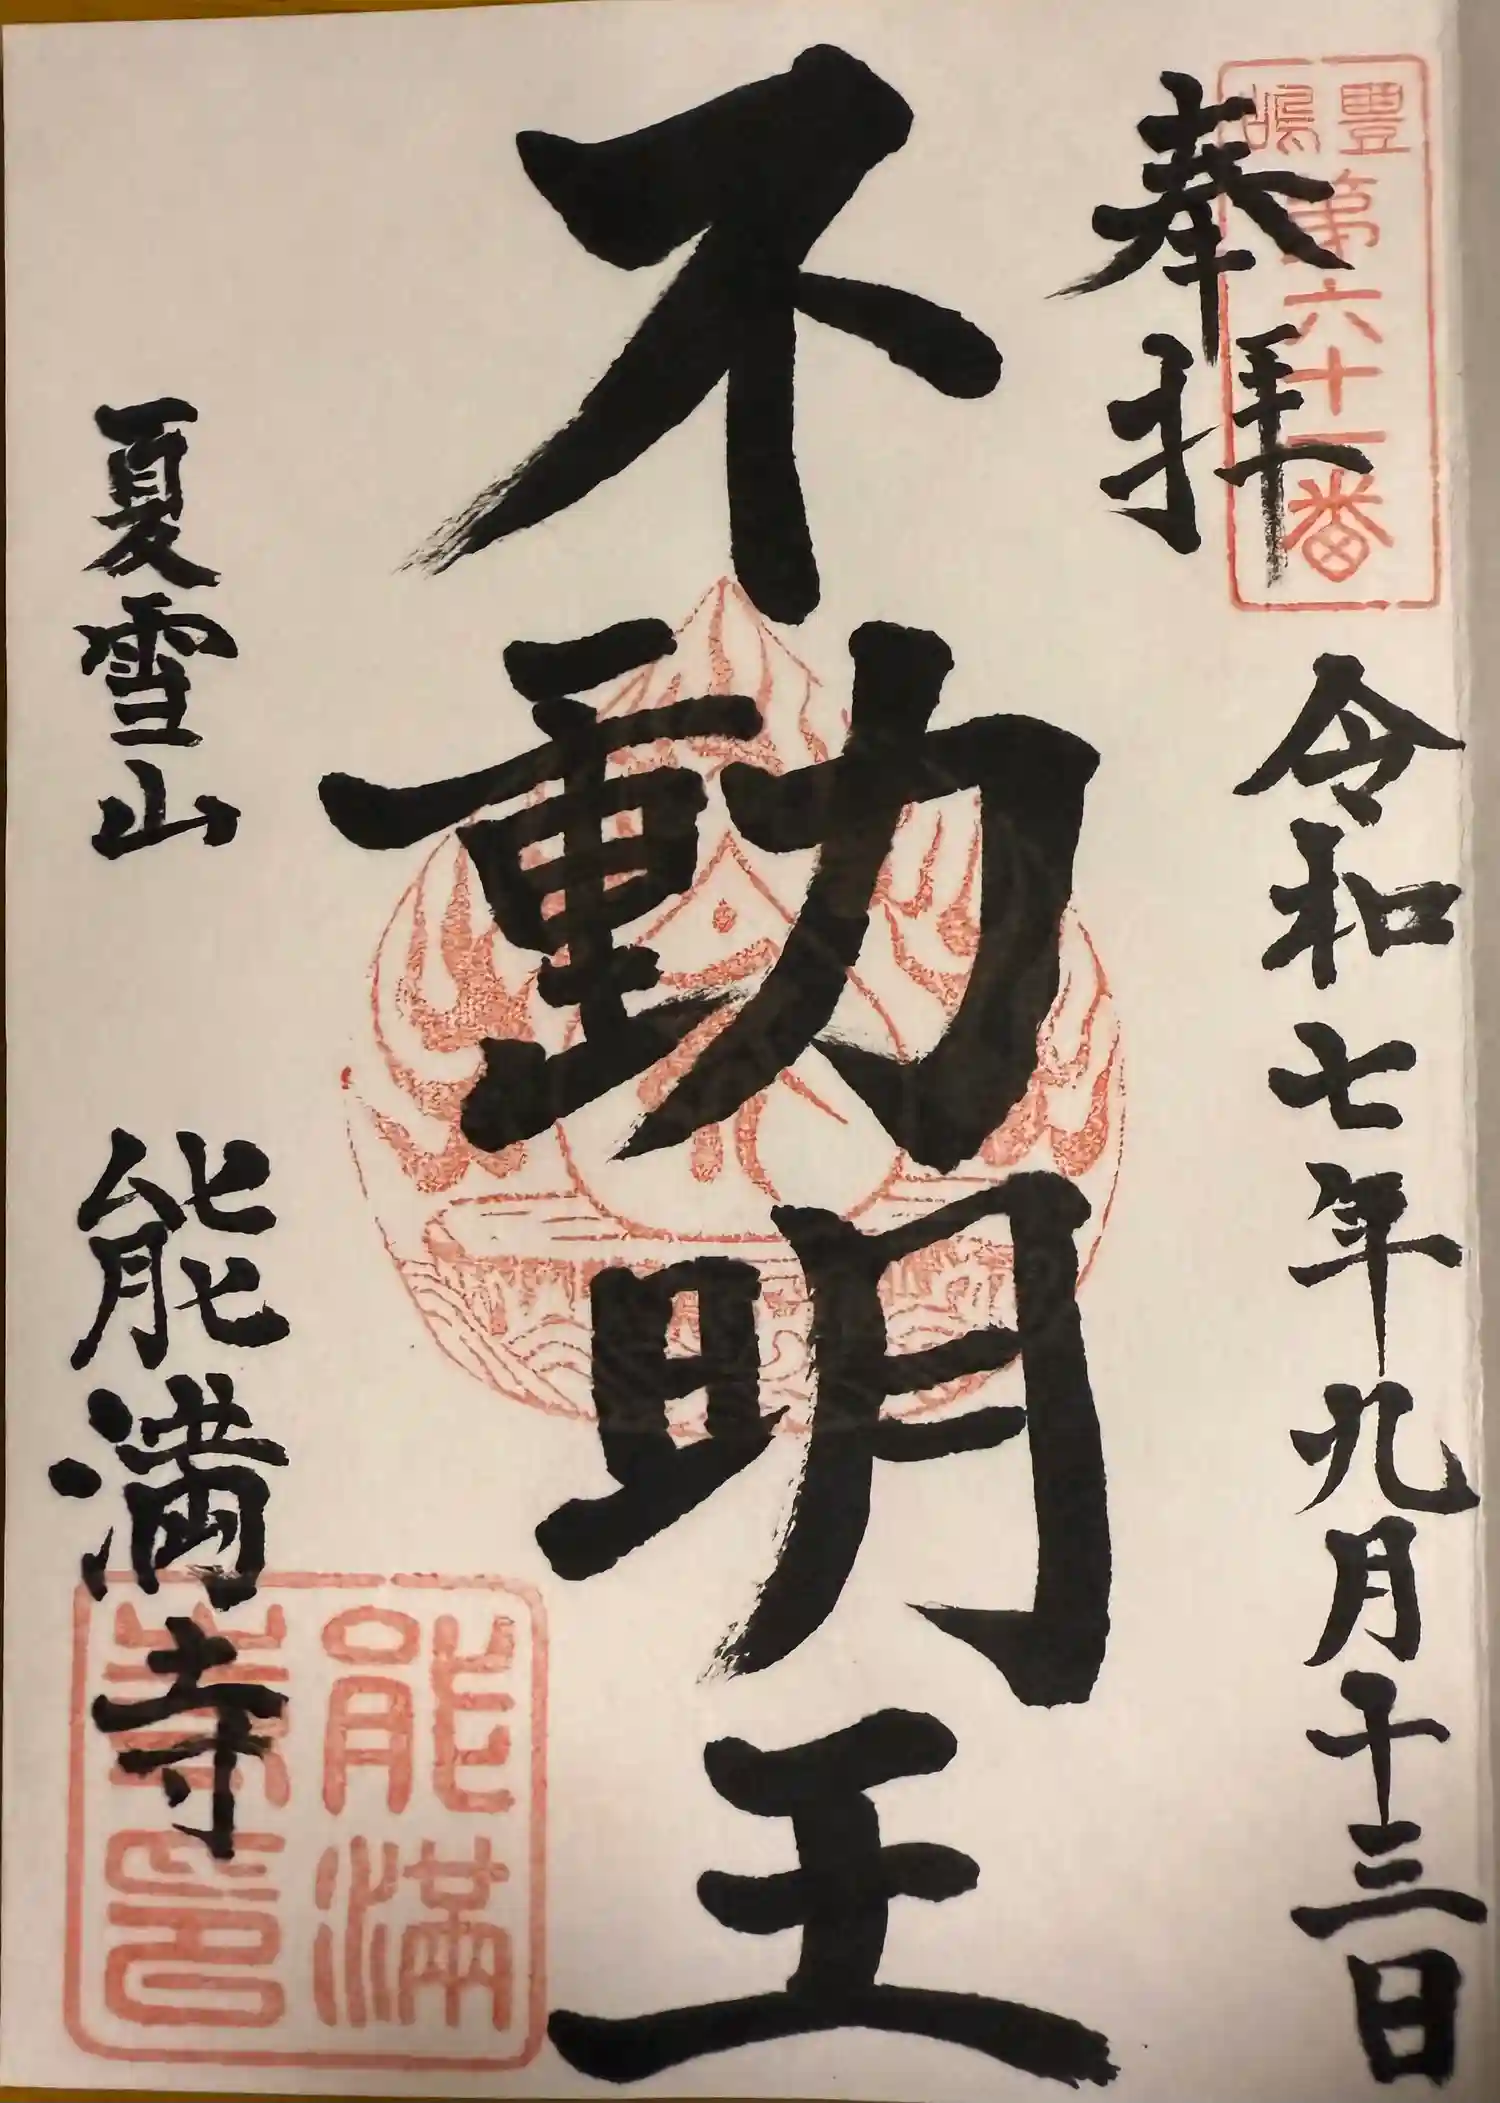 豊嶋
第六十一番
奉拝
令和七年九月十三日
不動明王
夏雪山
能満寺
能満
寺印